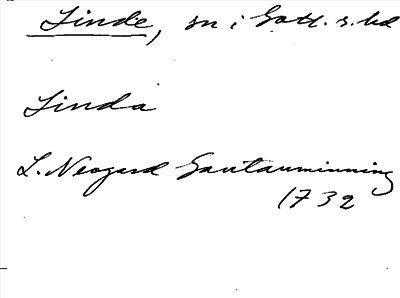 Linde, sn i Gotl. s. hd
Linda
L. Neogard Gautauminning
1732